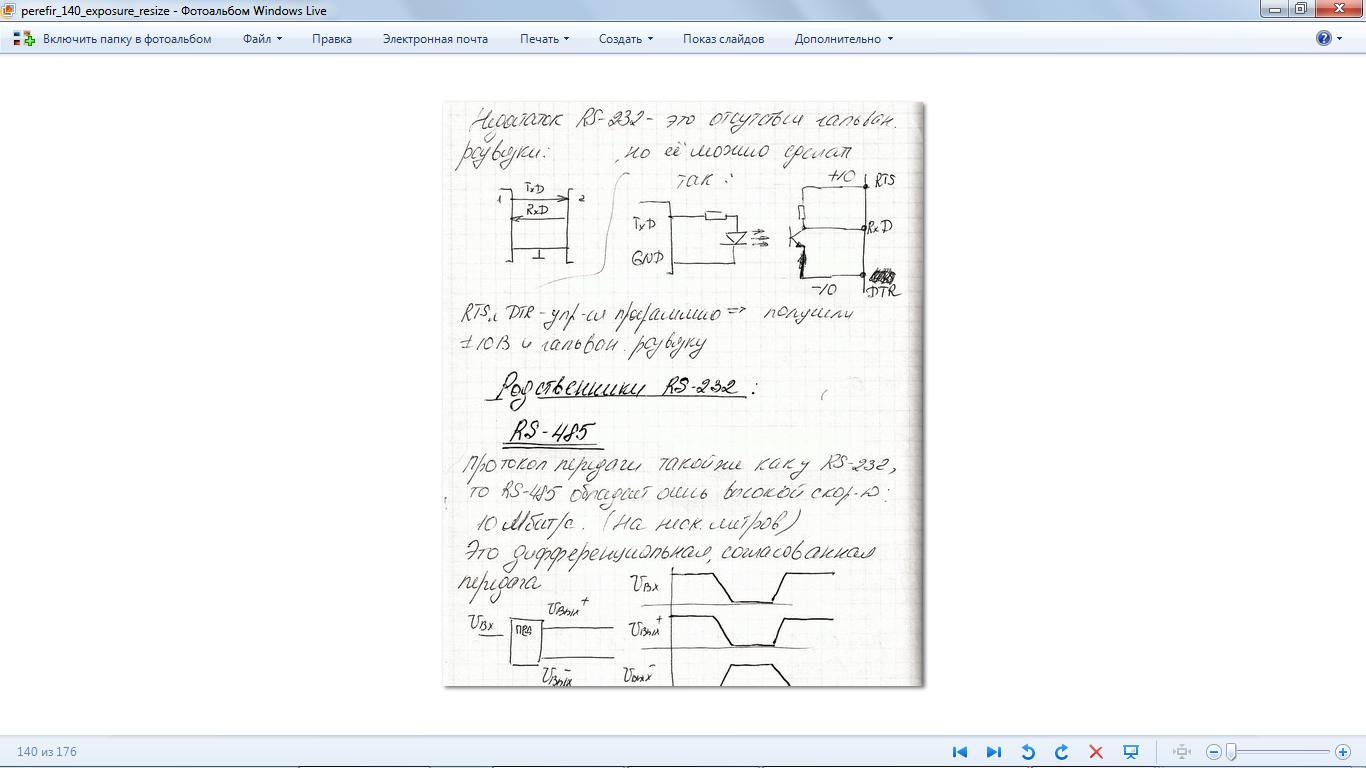 perefir_140_exposure_resize - Фотоальбом Windows Live
Включить папку в фотоальбом Файл Правка Электронная почта Печать Создать Показ слайдов Дополнительно
Недостаток RS-232 - это отсутствие гальван.
развязки: , но её можно сделат
так:
TxD
1 2
RxD
TxD
GND
+10 RTS
RxD
-10 DTR
RTS и DTR - упр-ся программно => получили
±10В и гальван. развязку
Родственники RS-232:
RS-485
Протокол передачи такой же как у RS-232,
то RS-485 обладает очень высокой скор-ю:
10 Мбит/с. (на неск. метров)
Это дифференциальная, согласованная
передача
Uвх ПРД Uвых+ Uвых-
Uвх
Uвых+
Uвых-
140 из 176